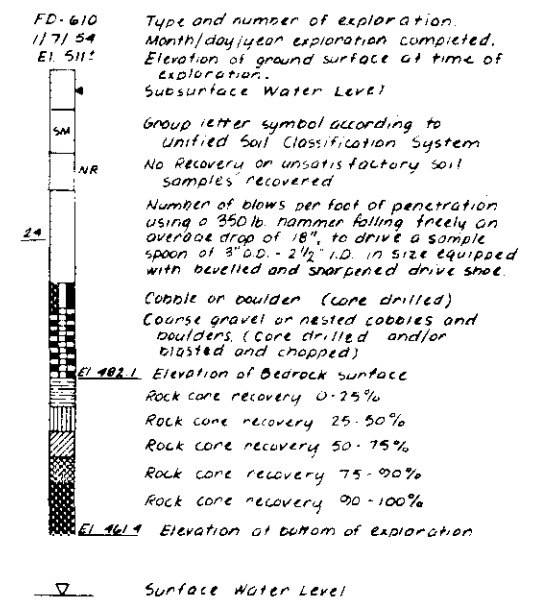 FD-610 Type and number of exploration.
1/7/54 Month/day/year exploration completed.
El. 511± Elevation of ground surface at time of
exploration.
Subsurface Water Level
SM Group letter symbol according to
Unified Soil Classification System
NR No Recovery or unsatisfactory soil
samples recovered
Number of blows per foot of penetration
using a 350 lb. hammer falling freely an
24 average drop of 18", to drive a sample
spoon of 3" O.D. - 2 1/2" I.D. in size equipped
with bevelled and sharpened drive shoe.
Cobble or boulder (core drilled)
Coarse gravel or nested cobbles and
boulders. (Core drilled and/or
blasted and chopped)
El 482.1 Elevation of Bedrock surface
Rock core recovery 0-25%
Rock core recovery 25-50%
Rock core recovery 50-75%
Rock core recovery 75-90%
Rock core recovery 90-100%
El 461.4 Elevation at bottom of exploration
Surface Water Level